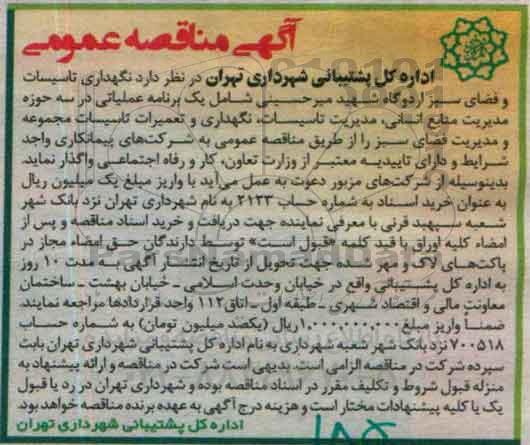 آگهی مناقصه عمومی
اداره کل پشتیبانی شهرداری تهران در نظر دارد نگهداری تاسیسات
و فضای سبز اردوگاه شهید میرحسینی شامل یک برنامه عملیاتی در سه حوزه
مدیریت منابع انسانی، مدیریت تاسیسات، نگهداری و تعمیرات تاسیسات مجموعه
و مدیریت فضای سبز را از طریق مناقصه عمومی به شرکت‌های پیمانکاری واجد
شرایط و دارای تاییدیه معتبر از وزارت تعاون، کار و رفاه اجتماعی واگذار نماید.
بدینوسیله از شرکت‌های مزبور دعوت به عمل می‌آید با واریز مبلغ یک میلیون ریال
به عنوان خرید اسناد به شماره حساب ۲۱۳۳ به نام شهرداری تهران نزد بانک شهر
شعبه سپهبد قرنی با معرفی نماینده جهت دریافت و خرید اسناد مناقصه و پس از
امضاء کلیه اوراق با قید کلمه «قبول است» توسط دارندگان حق امضاء مجاز در
پاکت‌های لاک و مهر شده جهت تحویل از تاریخ انتشار آگهی به مدت ۱۰ روز
به اداره کل پشتیبانی واقع در خیابان وحدت اسلامی ـ خیابان بهشت ـ ساختمان
معاونت مالی و اقتصاد شهری ـ طبقه اول ـ اتاق ۱۱۲ واحد قراردادها مراجعه نمایند.
ضمناً واریز مبلغ ۱،۰۰۰،۰۰۰،۰۰۰ ریال (یکصد میلیون تومان) به شماره حساب
۷۰۰۵۱۸ نزد بانک شهر شعبه شهرداری به نام اداره کل پشتیبانی شهرداری تهران بابت
سپرده شرکت در مناقصه الزامی است. بدیهی است شرکت در مناقصه و ارائه پیشنهاد به
منزله قبول شروط و تکلیف مقرر در اسناد مناقصه بوده و شهرداری تهران در رد یا قبول
یک یا کلیه پیشنهادات مختار است و هزینه درج آگهی به عهده برنده مناقصه خواهد بود.
اداره کل پشتیبانی شهرداری تهران